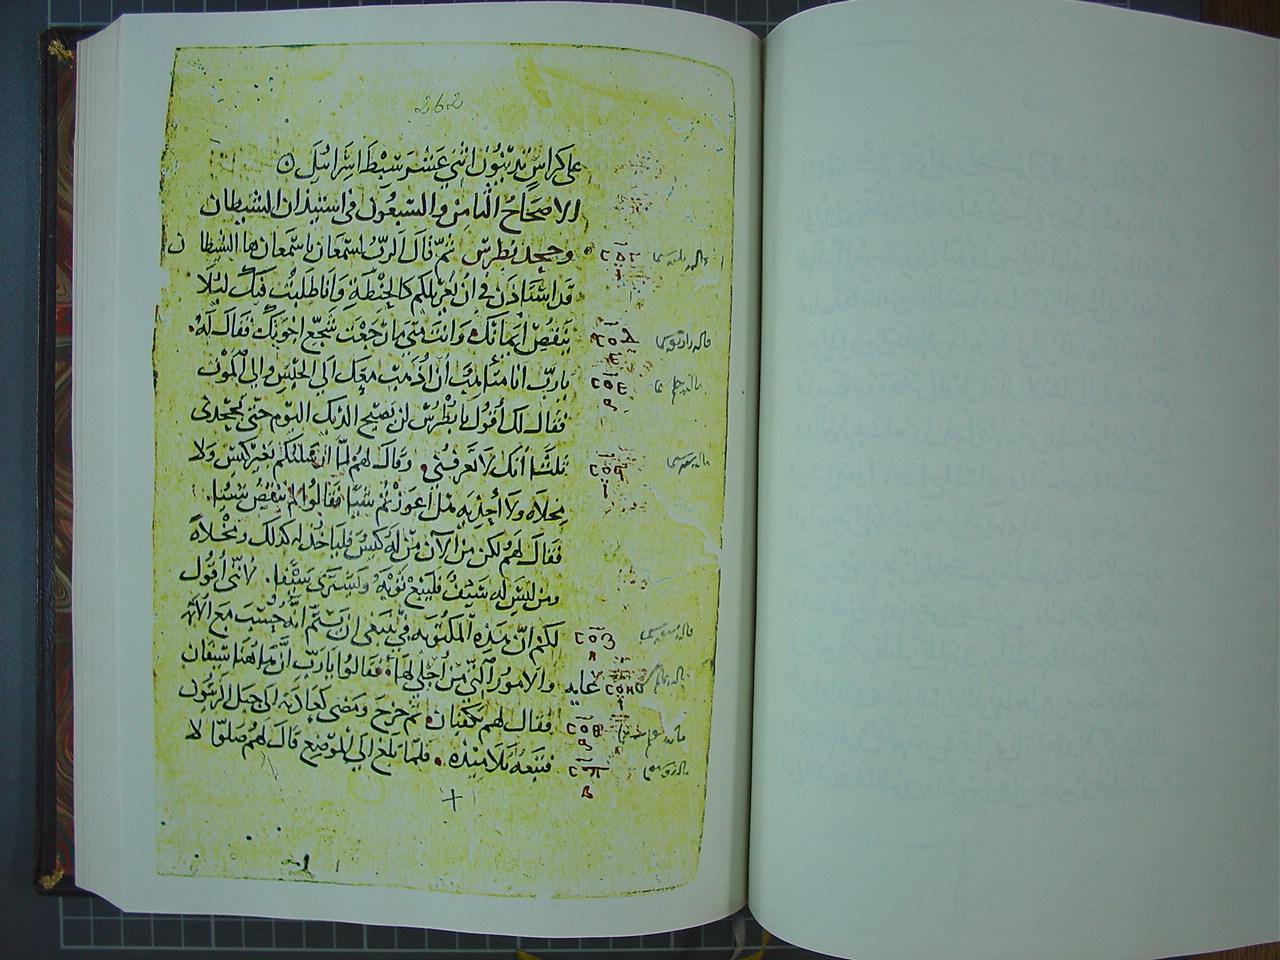 262
على كراسي تدينون اثني عشر سبط اسرائيل
الاصحاح الثامن والسبعون في استيذان الشيطان
وجحد بطرس ثم قال الرب لسمعان يا سمعان ها الشيطان
قد استاذن في ان يغربلكم كالحنطة وانا طلبت فيك ليلا
ينقص ايمانك وانت متى ما رجعت شجع اخوتك فقال له
يا رب انا متاهب ان اذهب معك الى الحبس والى الموت
فقال لك اقول يا بطرس لن يصيح الديك اليوم حتى تجحدني
ثلثا انك لا تعرفني وقال لهم لما ارسلتكم بغير كيس ولا
مخلاه ولا احذيه هل اعوزتم شيا فقالوا لم ينقص شيا
فقال لهم لكن من الآن من له كيس فلياخذ كذلك ومخلاة
ومن ليس له سيف فليبع ثوبه ويشتري سيفا لاني اقول
لكم ان هذه المكتوبه في ينبغي ان تتم انه حسب مع الاثمه
والامور التي من اجلي لها فقالوا يا رب ان ها هنا سيفان
فقال لهم تكفيان ثم خرج ومضى كعادته الى جبل الزيتون
فتبعه تلاميذه فلما بلغ الى الموضع قال لهم صلوا لا